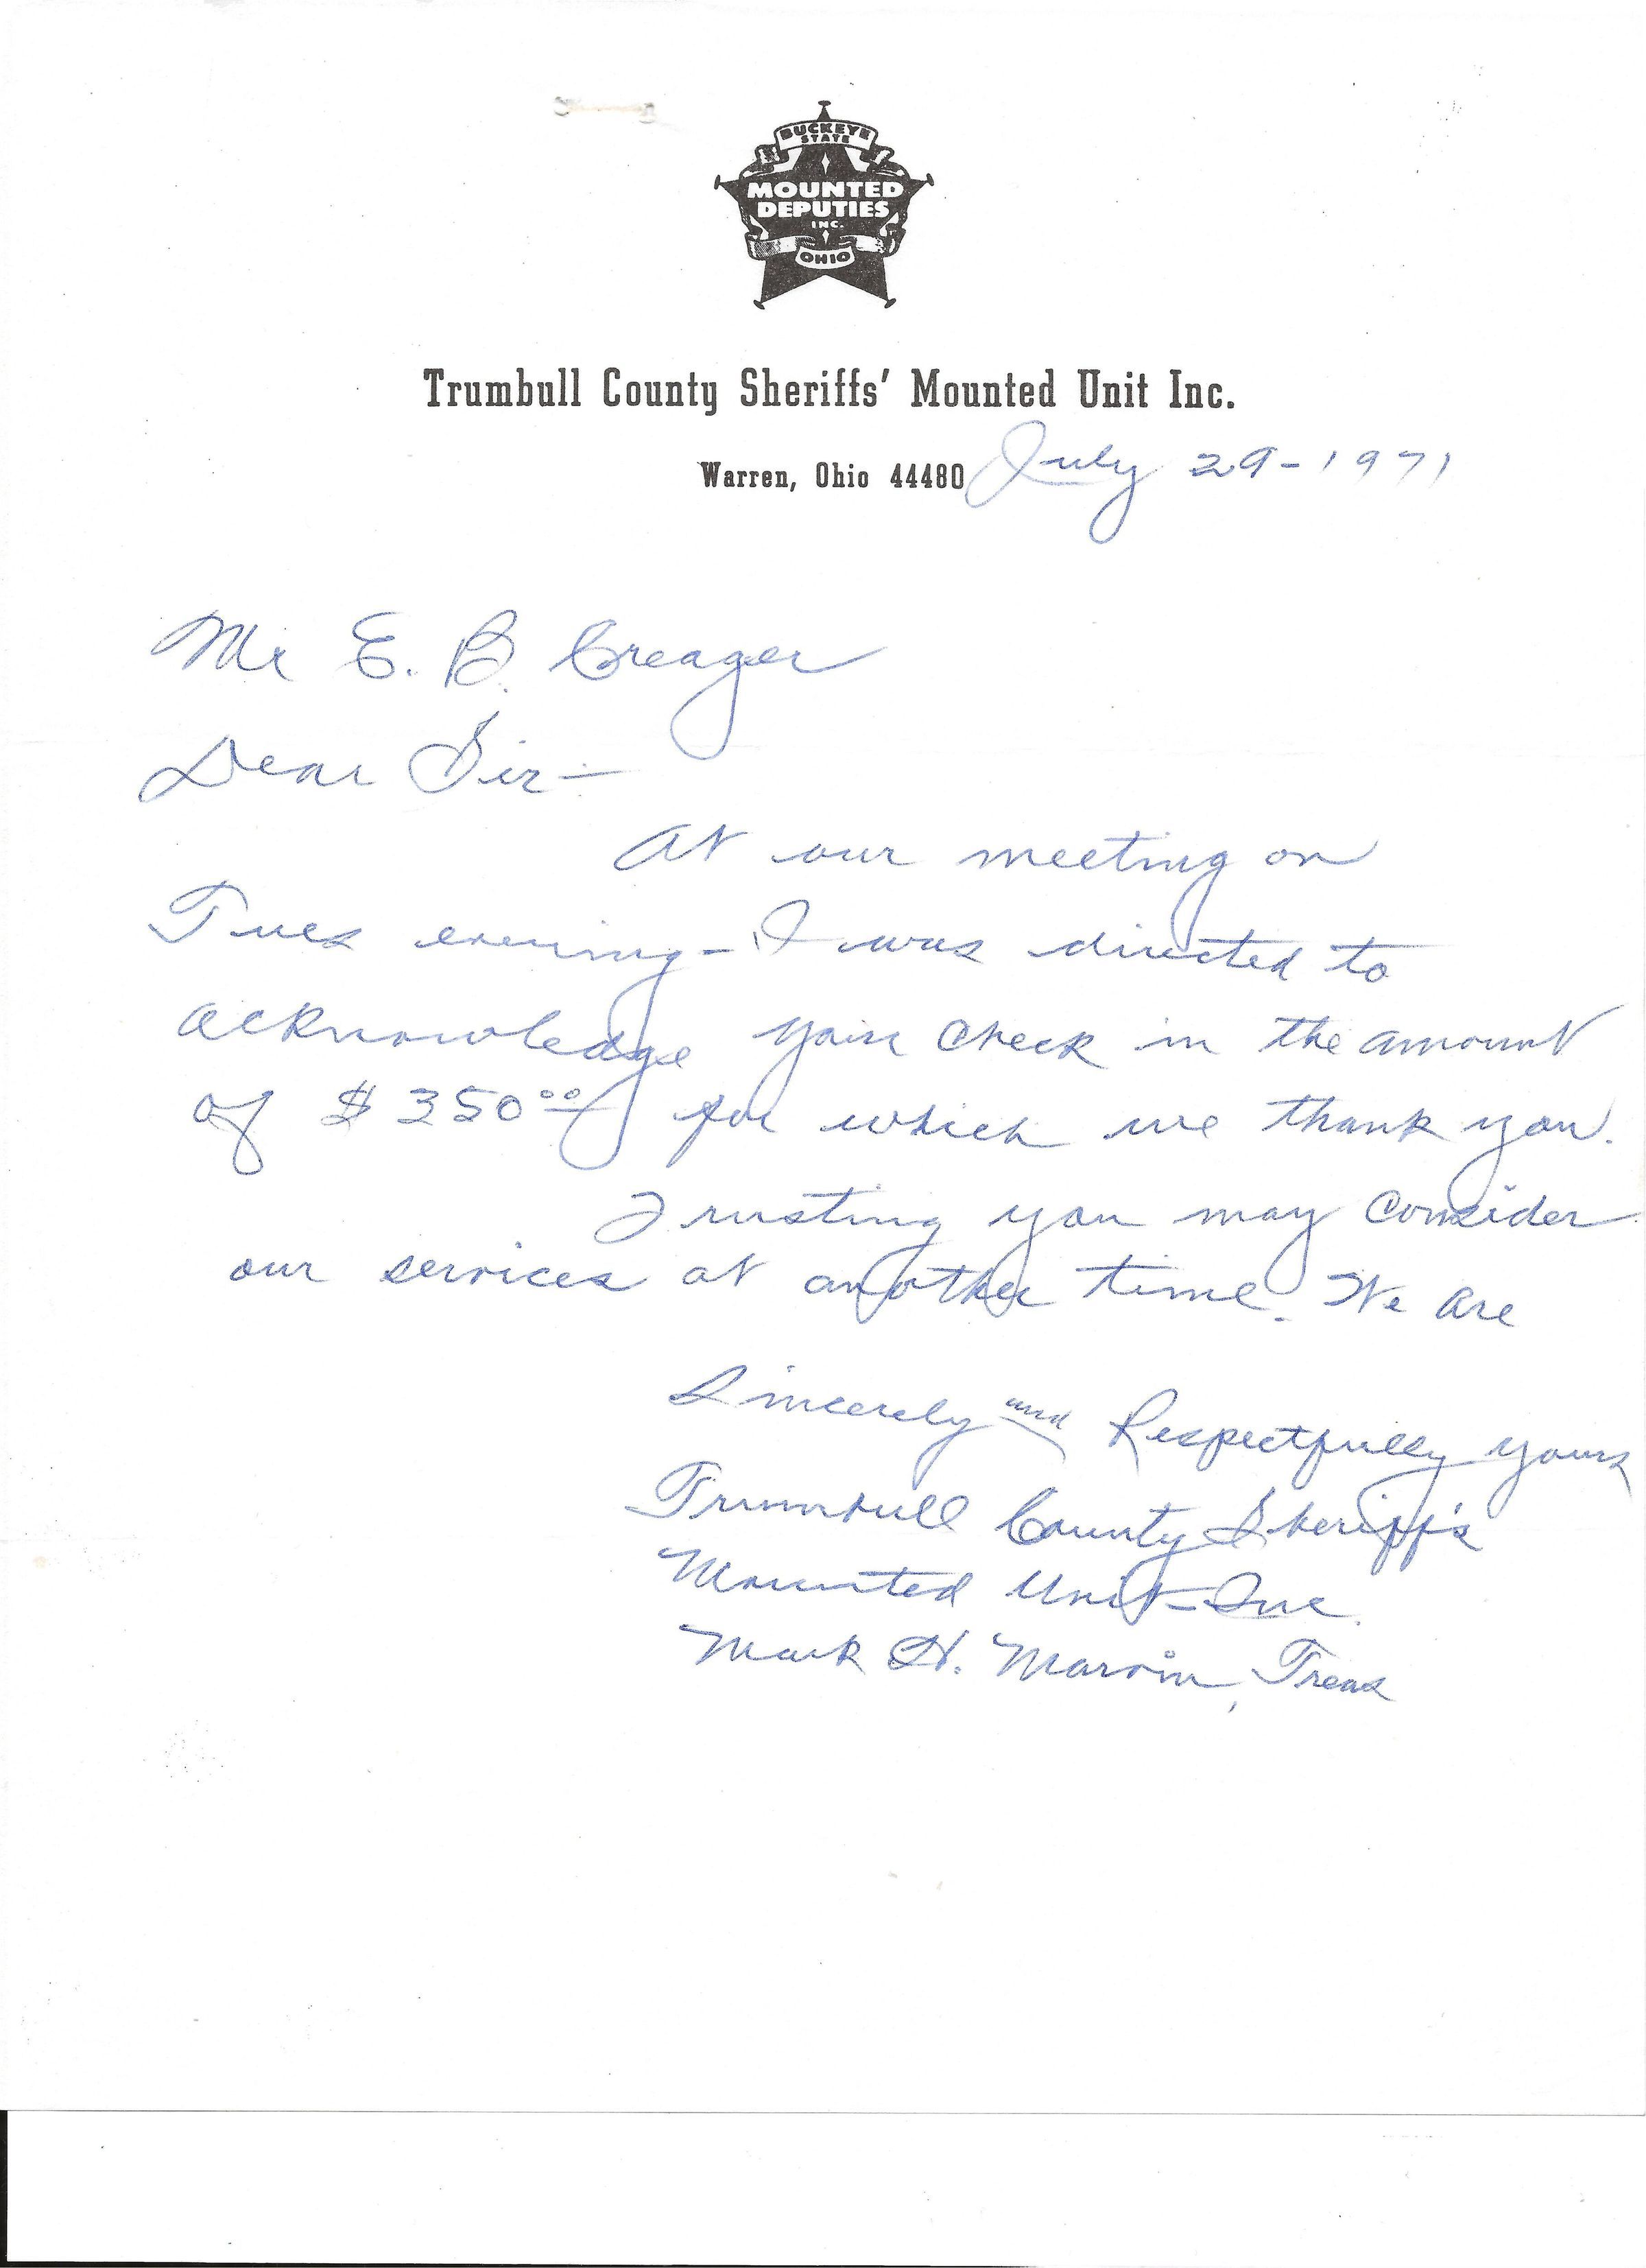 BUCKEYE
STATE
MOUNTED
DEPUTIES
INC.
OHIO
Trumbull County Sheriffs' Mounted Unit Inc.
Warren, Ohio 44480 July 29-1971
Mr E. B. Creager
Dear Sir-
At our meeting on
Tues evening - I was directed to
acknowledge your check in the amount
of $350.00 for which we thank you.
Trusting you may consider
our services at another time. We are
Sincerely and Respectfully yours
Trumbull County Sheriff's
Mounted Unit - Inc.
Mark H. Marvin, Treas